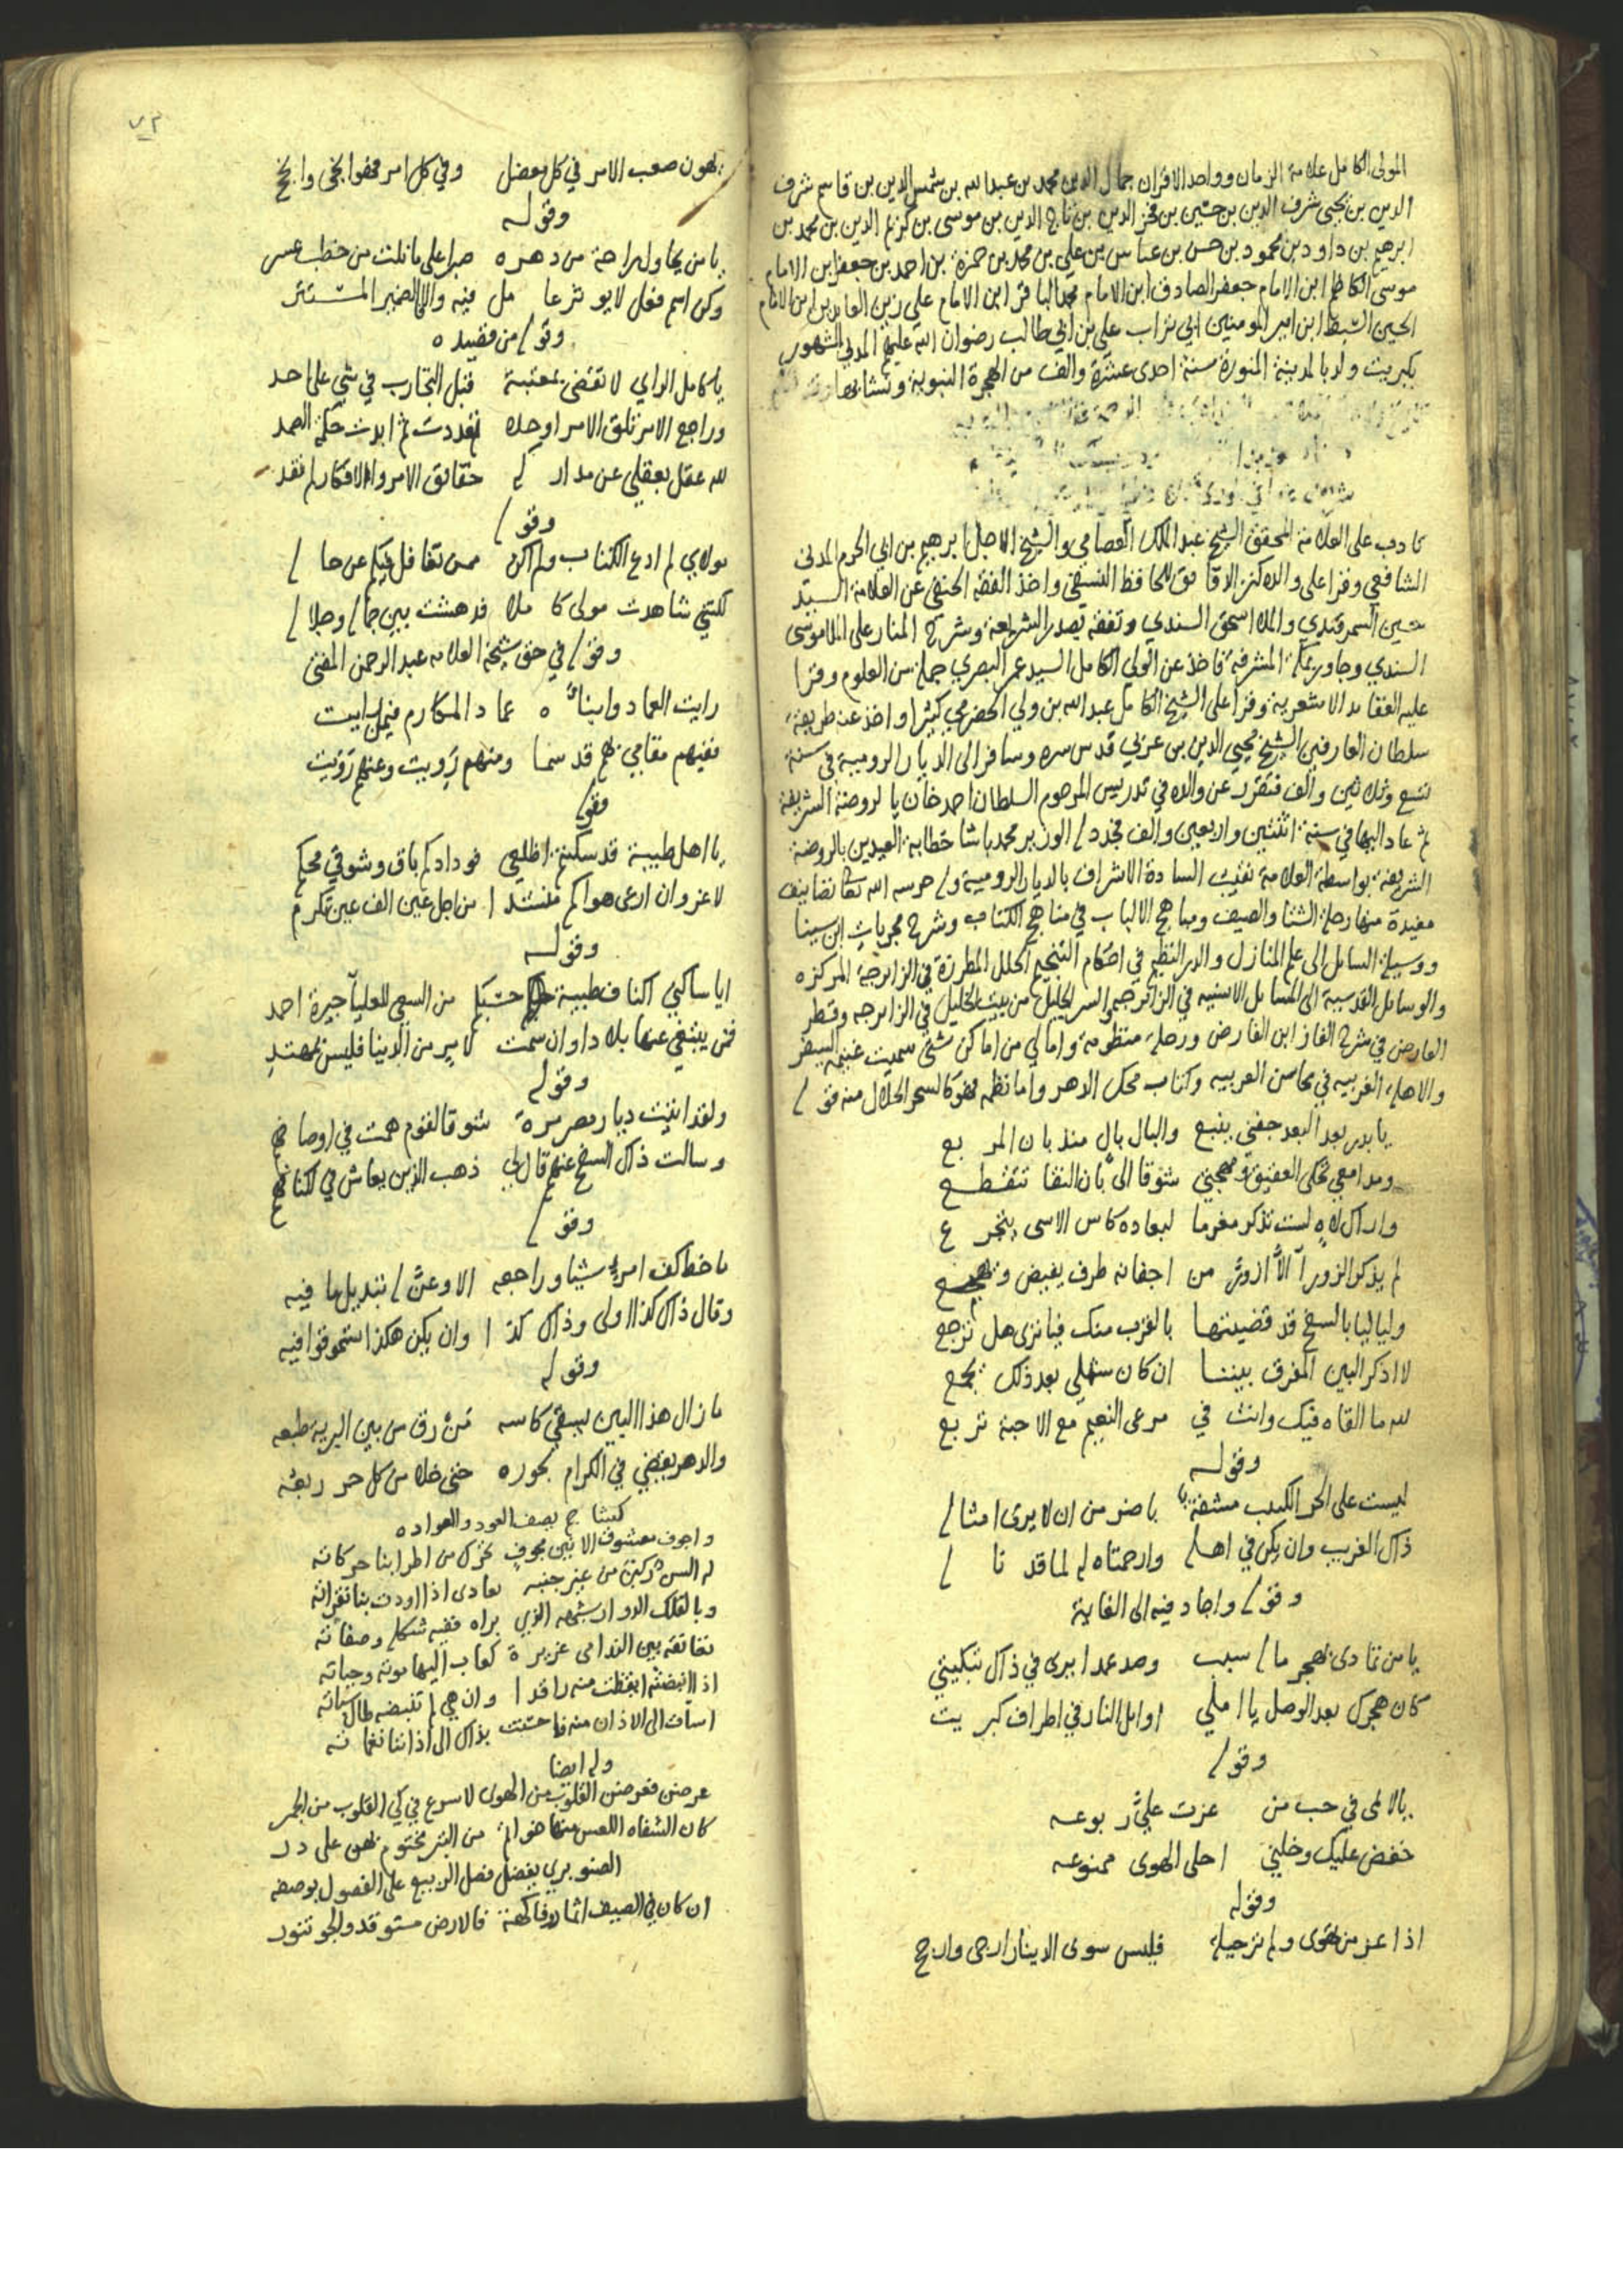 المولى الكامل علامة الزمان وواحد الاقران جمال الدين محمد بن عبد الله بن شمس الدين بن قاسم شرف
الدين بن يحيى شرف الدين بن حسين بن فخر الدين بن تاج الدين بن موسى بن كريم الدين بن محمد بن
ابرهيم بن داود بن محمود بن حسن بن عباس بن علي بن محمد بن حمزة بن احمد بن جعفر ابن الامام
موسى الكاظم ابن الامام جعفر الصادق ابن الامام محمد الباقر ابن الامام علي زين العابدين ابن الامام
الحسين السبط ابن امير المومنين ابي تراب علي بن ابي طالب رضوان الله عليهم المدني الشهور
بكبريت ولد بالمدينة المنورة سنة احدى عشرة والف من الهجرة النبوية ونشا بها
تادب على العلامة المحقق الشيخ عبد الملك العصامي والشيخ الاجل ابرهيم بن ابي الحرم المدني
الشافعي وقرا على والده كنز الافاقق للحافظ النسفي واخذ الفقه الحنفي عن العلامة السيد
حسين السمرقندي والملا اسحق السندي وتفقه بصدر الشريعة وشرح المنار على الملا موسى
السندي وجاور بمكة المشرفة فاخذ عن الولي الكامل السيد عمر البصري جملة من العلوم وقرا
عليه العقايد الاشعرية وقرا على الشيخ الكامل عبد الله بن ولي الحضرمي كثيرا واخذ عنه طريقة
سلطان العارفين الشيخ محيي الدين بن عربي قدس سره وسافر الى الديار الرومية في سنة
تسع وثلاثين والف فتقرر عن والده في تدريس المرحوم السلطان احمد خان بالروضة الشريفة
ثم عاد اليها في سنة اثنتين واربعين والف فجدد له الوزير محمد باشا خطابة العيدين بالروضة
الشريفة بواسطة العلامة نقيب السادة الاشراف بالديار الرومية وله حرسه الله تعالى تصانيف
مفيدة منها رحلة الشتا والصيف ومباهج الالباب في مناهج الكتاب وشرح مجربات ابن سينا
ووسيلة السايل الى علم المنازل والدر النظيم في احكام التنجيم الحلل المطرزة في الزايرجة المركزه
والوسايل القدسية الى المسايل الانسيه في الزايرجه والسر الجليل من بيت الخليل في الزايرجه وقطر
العارض في شرح الغاز ابن الفارض ورحلة منظومة وامالي من اماكن شتى سميت غنيمة السفر
والاهلة الغربيه في محاسن العربيه وكتاب محك الدهر واما نظمه فهو كالسحر الحلال منه قوله
يا بدر بعد البعد جفني ينبع والبال بال منذ بان المربع
ومدامعي تحكي العقيق ومهجتي شوقا الى بان النقا تتقطع
واراك لاه لست تذكر مغرما لبعاده كاس الاسى يتجرع
لم يذكر الزوراء الا ازور من اجفانه طرف يفيض ويهمع
ولياليا بالسفح قد قضيتها بالقرب منك فيا ترى هل ترجع
لا اذكر البين المفرق بيننا ان كان شملي بعد ذلك يجمع
لله ما القاه فيك وانت في مرعى النعيم مع الاحبة تربع
وقوله
ليست على الحر الكئيب مشقة باضر من ان لا يرى امثاله
ذاك الغريب وان يكن في اهله وارحمتاه له لما قد ناله
وقوله واجاد فيه الى الغاية
يا من تمادى بهجر ماله سبب وصد عمدا يرى في ذاك تبكيتي
كان هجرك بعد الوصل يا املي اوايل النار في اطراف كبريت
وقوله
يالائمي في حب من عزت علي ربوعه
خفض عليك وخلني احلى الهوى ممنوعه
وقوله
اذا عز من تهوى ولم تر حيلة فليس سوى الدينار ارجى وارجح
٧٣
يهون صعب الامر في كل معضل وفي كل امر فهو انجى وانجح
وقوله
يا من يحاول راحة من دهره صبرا على ما نلت من خطب عسر
وكن اسم فعل لا يوثر عامل فيه والا كالضمير المستتر
وقوله من قصيده
يا كامل الراي لا تقضى بمعتبة قبل التجارب في شي على احد
وراجع الامر تلق الامر اوحده تعددت ثم ابدت حكمة الصمد
لله عقل بعقلي عن مدارك حقايق الامر والافكار لم تقد
وقوله
مولاي لم ادع الكتاب ولم اكن ممن تغافل عنكم عن حاله
لكنني شاهدت مولى كاملا فدهشت بين جماله وجلاله
وقوله في حق شيخه العلامه عبد الرحمن المفتي
رايت العماد وابناه عماد المكارم فيما رايت
ففيهم مقامي بهم قد سما ومنهم رويت وعنهم رويت
وقوله
يا اهل طيبة قد سكنتم اظلعي فودادكم باق وشوقي محكم
لاغزو ان ارعى هواكم منشدا من اجل عين الف عين تكرم
وقوله
ايا ساكني اكناف طيبة حسبكم من السعي للعلياء جيرة احمد
فمن يبتغي عنها بلادا وان سمت لامر من الدنيا فليس بمهتد
وقوله
ولقد اتيت ديار مصر مرة شوقا لقوم همت في اوصافهم
وسالت ذاك السفح عنهم قال لي ذهب الذين يعاش في اكنافهم
وقوله
ما خط كف امرئ شيا وراجعه الا وعن له تبديل ما فيه
وقال ذاك كذا اولى وذاك كذا وان يكن هكذا تسمو قوافيه
وقوله
ما زال هذا البين يسقي كاسه من رق من بين البريه طبعه
والدهر يقضي في الكرام بجوره حتى خلا من كل حر ربعه
كشاجم يصف العود والعواده
واجوف معشوق الانين مجوف تحرك من اطرابنا حركاته
وبالفلك الدوار شبهه الذي يراه ففيه شكله وصفاته
تعانقه بين الندامى غريرة كعاب اليها موته وحياته
اذا انبضته ايقظت منه راقدا وان هي لم تنبضه طال سباته
وله ايضا
عرضن فعرضن القلوب من الهوى لاسرع في كي القلوب من الجمر
كان الشفاه اللعس منها خواتم من التبر مختوم بهن على در
الصنوبري يفضل فصل الربيع على الفصول بوصفه
ان كان في الصيف اثمار وفاكهة فالارض مستوقد والجو تنور